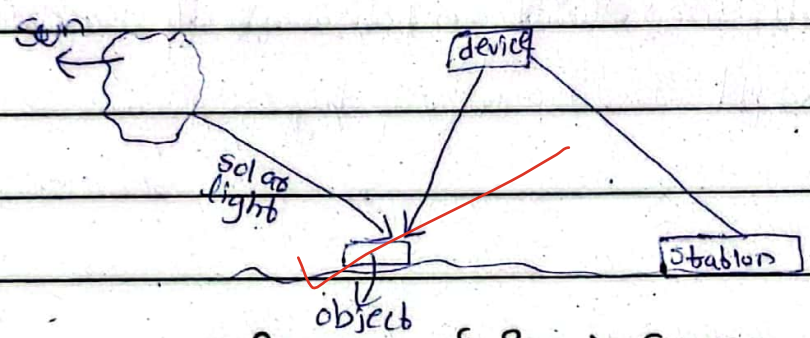 sun
device
Solar
light
Station
object